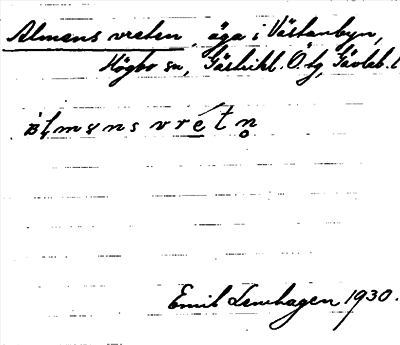 Almans vreten, äga i Västanbyn,
Högbo sn, Gästrikl. Ö. tg, Gävleb. l
Emil Lenhagen 1930.